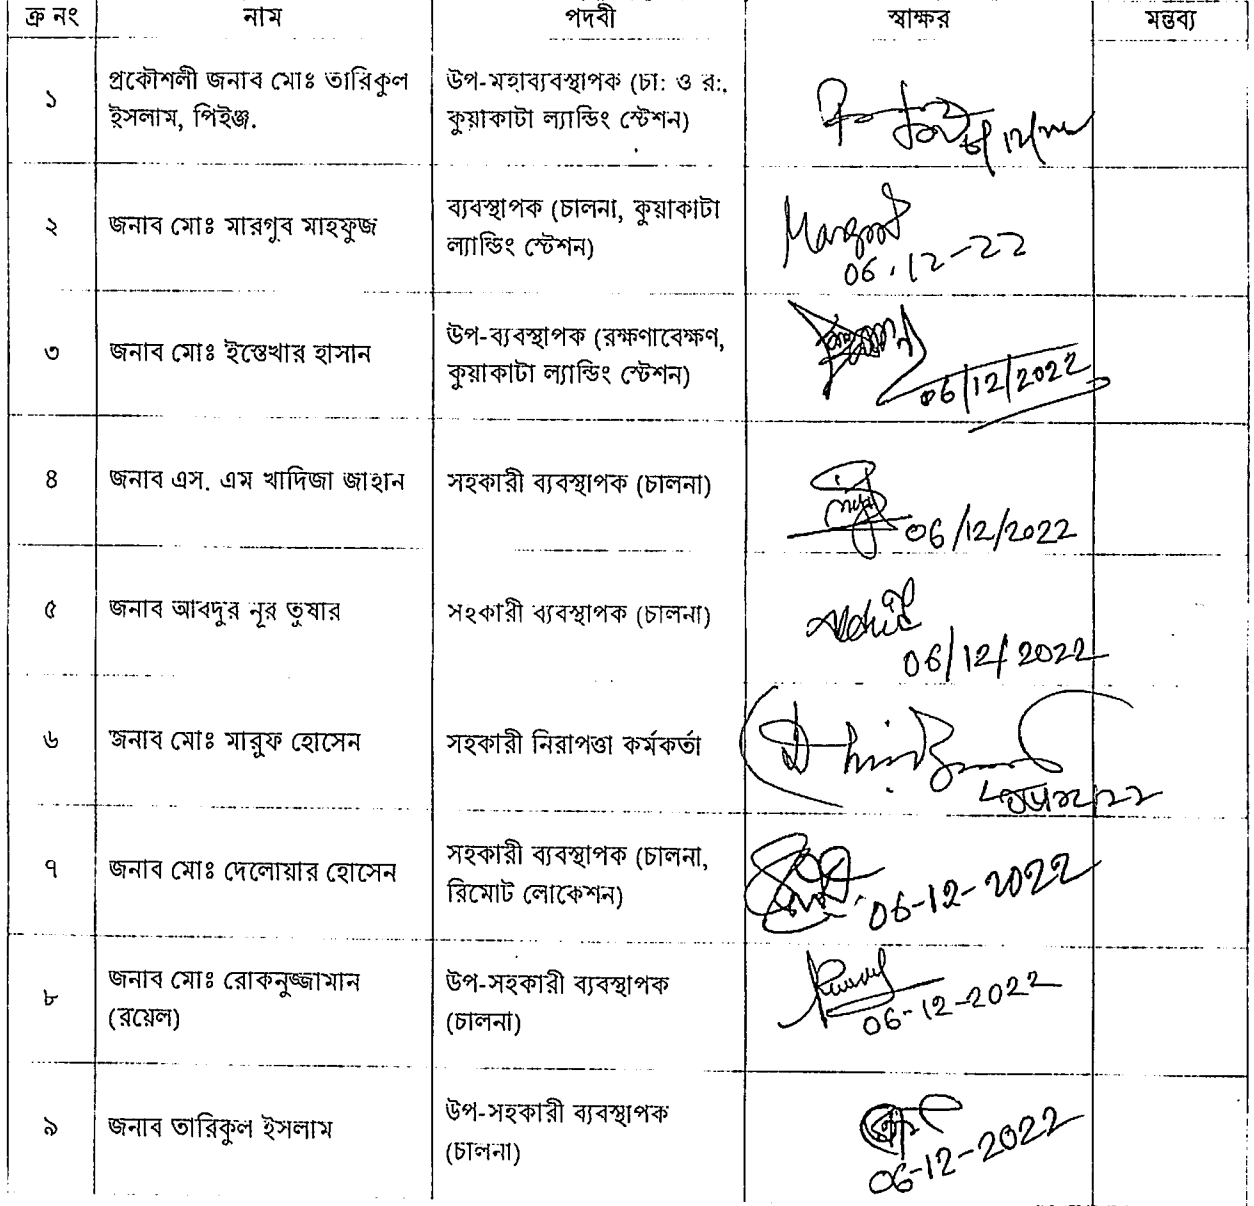 ক্র নং নাম পদবী স্বাক্ষর মন্তব্য
১ প্রকৌশলী জনাব মোঃ তারিকুল উপ-মহাব্যবস্থাপক (চা: ও র:,
ইসলাম, পিইঞ্জ. কুয়াকাটা ল্যান্ডিং স্টেশন)
২ জনাব মোঃ মারগুব মাহফুজ ব্যবস্থাপক (চালনা, কুয়াকাটা
ল্যান্ডিং স্টেশন)
06.12-22
৩ জনাব মোঃ ইস্তেখার হাসান উপ-ব্যবস্থাপক (রক্ষণাবেক্ষণ,
কুয়াকাটা ল্যান্ডিং স্টেশন)
06/12/2022
৪ জনাব এস. এম খাদিজা জাহান সহকারী ব্যবস্থাপক (চালনা)
06/12/2022
৫ জনাব আবদুর নূর তুষার সহকারী ব্যবস্থাপক (চালনা)
06/12/2022
৬ জনাব মোঃ মারুফ হোসেন সহকারী নিরাপত্তা কর্মকর্তা
৭ জনাব মোঃ দেলোয়ার হোসেন সহকারী ব্যবস্থাপক (চালনা,
রিমোট লোকেশন)
06-12-2022
৮ জনাব মোঃ রোকনুজ্জামান উপ-সহকারী ব্যবস্থাপক
(রয়েল) (চালনা)
06-12-2022
৯ জনাব তারিকুল ইসলাম উপ-সহকারী ব্যবস্থাপক
(চালনা)
06-12-2022